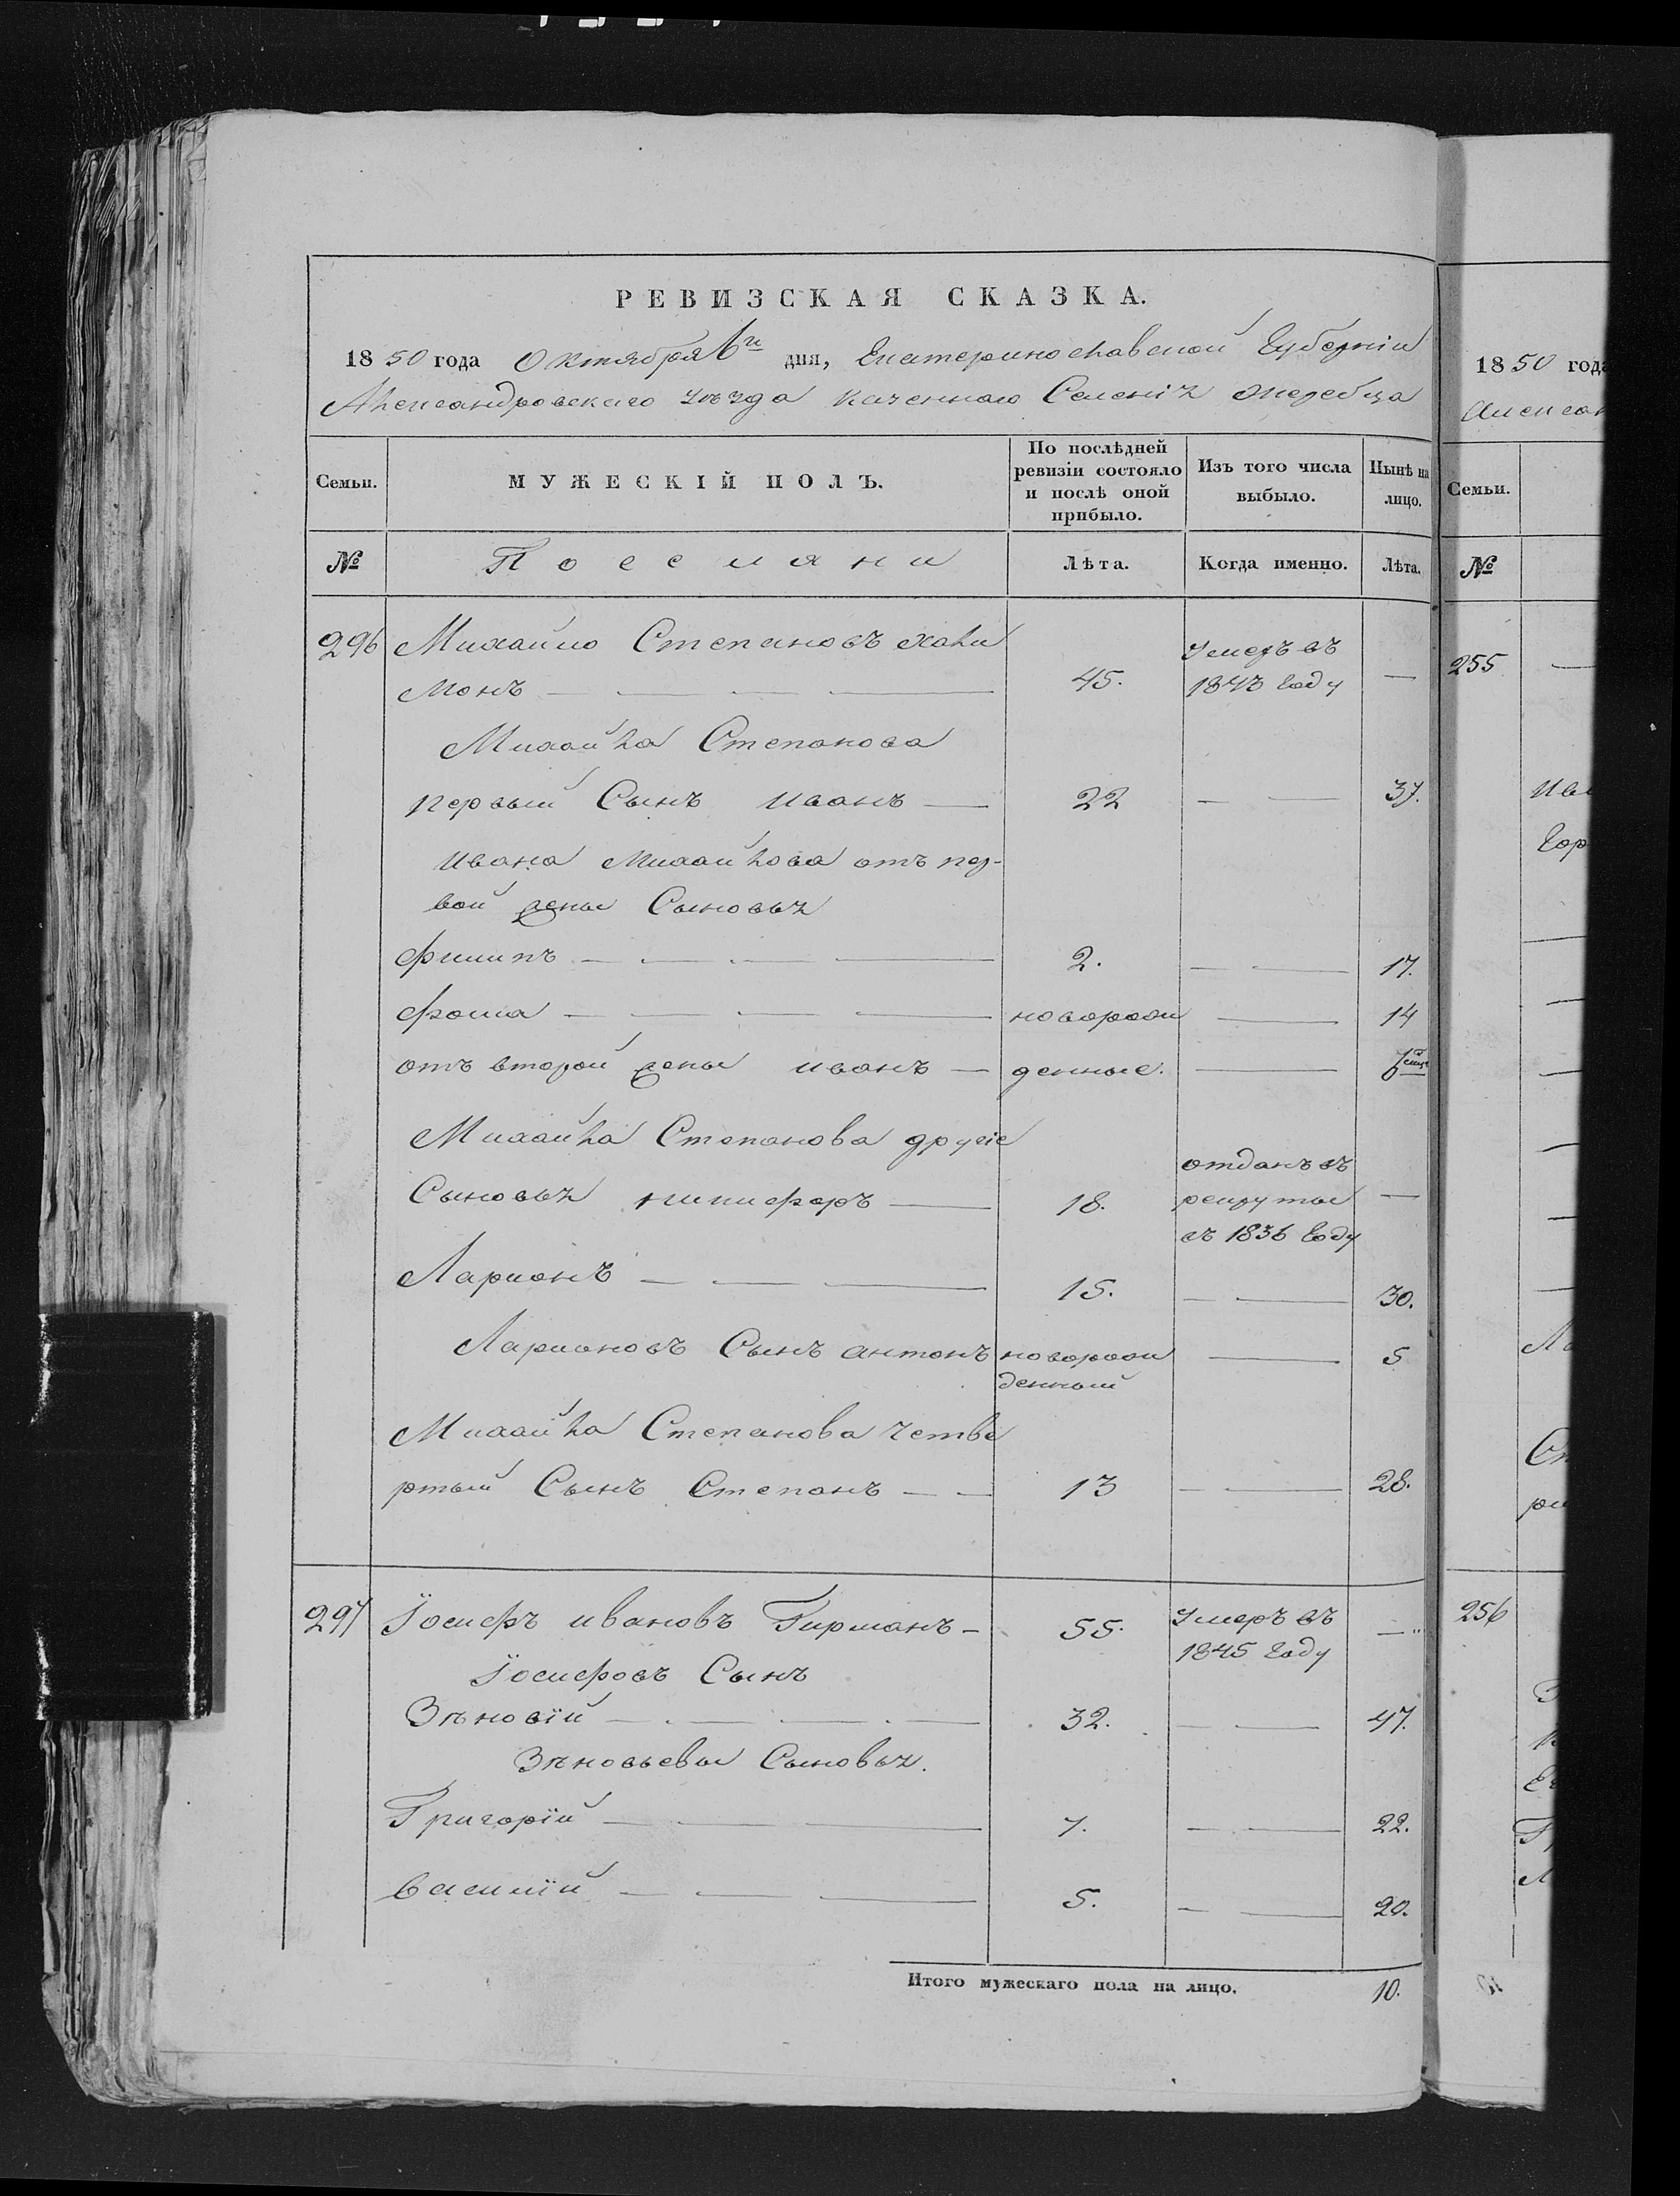 РЕВИЗСКАЯ СКАЗКА.
1850 года Октября 6го дня, Екатеринославской Губерніи
Александровскаго уѣзда казеннаго Селенія
Семьи.
МУЖЕСКІЙ ПОЛЪ.
По послѣдней ревизіи состояло и послѣ оной прибыло.
Изъ того числа выбыло.
Нынѣ на лицо.
№
Поселяни
Лѣта.
Когда именно.
Лѣта.
296 Михайло Степановъ Хали
монъ — 45. умеръ въ 1843 Году —
Михайла Степанова
первый Сынъ Иванъ — 22 — 37.
Ивана Михайлова отъ пер-
вой жены Сыновья
Филипъ — 2. — 17.
Фома — новорож — 14
отъ второй жены иванъ — денные. —
Михайла Степанова другіе
Сыновья никифоръ — 18. отданъ въ рекруты въ 1836 Году —
Ларионъ — 15. — 30.
Ларионовъ Сынъ антонъ новорож денный — 5
Михайла Степанова четве
ртый Сынъ Степанъ — 13 — 28.
297 Іосифъ ивановъ Гирманъ — 55. умеръ въ 1845 Году —
Іосифовъ Сынъ
Зѣновій — 32. — 47.
Зѣновьевы Сыновья.
Григорій — 7. — 22.
Василій — 5. — 20.
Итого мужескаго пола на лицо. 10.
1850 года
Алексан
Семьи.
№
255
Ива
256